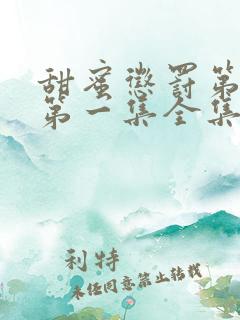 甜蜜惩罚第
第一集全集
利特
未经同意禁止转载